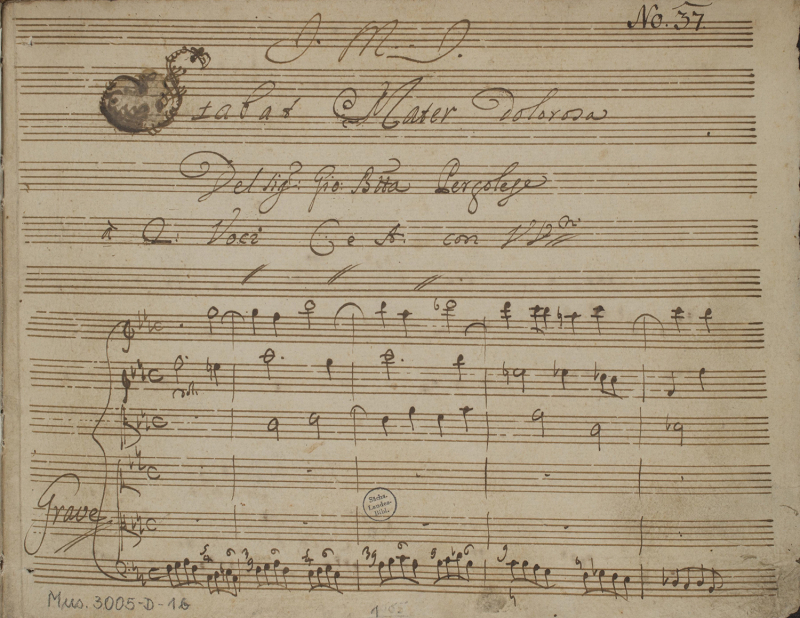 No. 37.
J. M. J.
Stabat Mater Dolorosa
Del Sigr: Gio: Btta Pergolese
à 2: Voci C: e A: con VV:ni
dol:
Grave
Sächs.
Landes-
Bibl.
Mus. 3005-D-1b
1